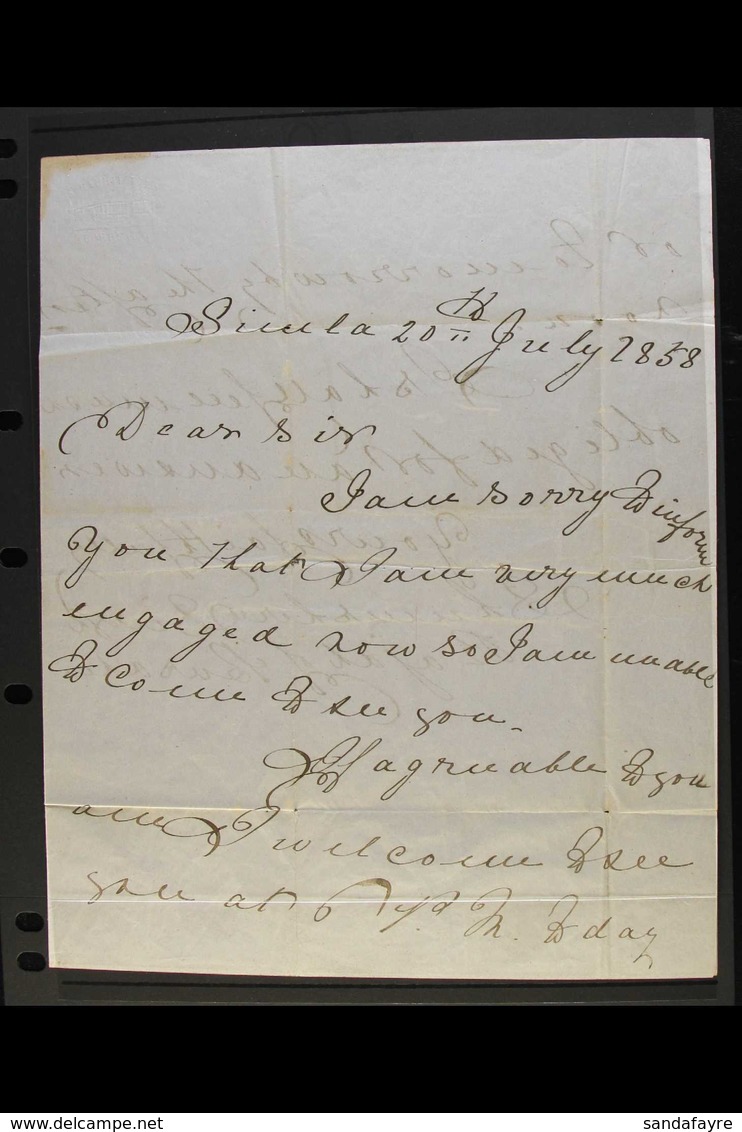 Simla 20th July 1858
Dear Sir
I am sorry to inform
you that I am very much
engaged now so I am unable
to come to see you.
If agreeable to you
am I welcome to see
you at 6 P. M. to day
delcampe.net
sandafayre